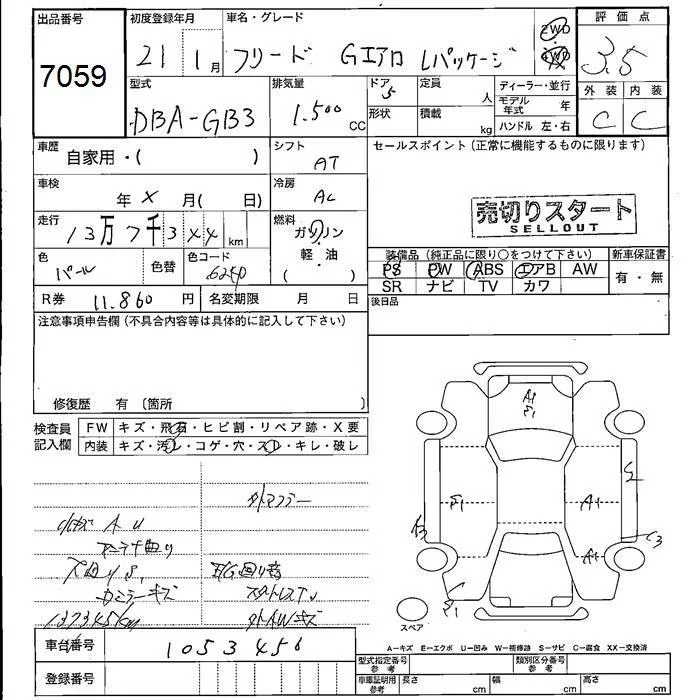 出品番号 初度登録年月 車名・グレード 評価点
7059 21 1月 フリード Gエアロ Lパッケージ 2WD 4WD 3.5
外装 内装
C C
型式 排気量 ドア 定員 ディーラー・並行
DBA-GB3 1.500 CC 5 人 モデル年式 年
形状 積載 kg ハンドル 左・右
車歴 シフト セールスポイント(正常に機能するものに限ります)
自家用・( ) AT
車検 冷房
年 X 月( 日) AC
売切りスタート
SELLOUT
走行 燃料
13万7千3XX km ガソリン
・
軽・油
( )
装備品(純正品に限り○をつけて下さい) 新車保証書
PS PW ABS エアB AW 有・無
SR ナビ TV カワ
色 色替 色コード
パール 6240
R券 11.860円 名変期限 月 日
後日品
注意事項申告欄(不具合内容等は具体的に記入して下さい)
修復歴 有〔箇所 〕
検査員記入欄 FW キズ・飛石・ヒビ割・リペア跡・X要
内装 キズ・汚れ・コゲ・穴・スレ・キレ・破レ
A U
アンテナ曲り
キズ
137345km
A1
E1
E1
A1
A1
E1
スペア
A-キズ E-エクボ U-凹み W-補修跡 S-サビ C-腐食 XX-交換済
車台番号 1053456
登録番号
型式指定番号 参考 類別区分番号 参考
車庫証明用 参考 長さ cm 幅 cm 高さ cm